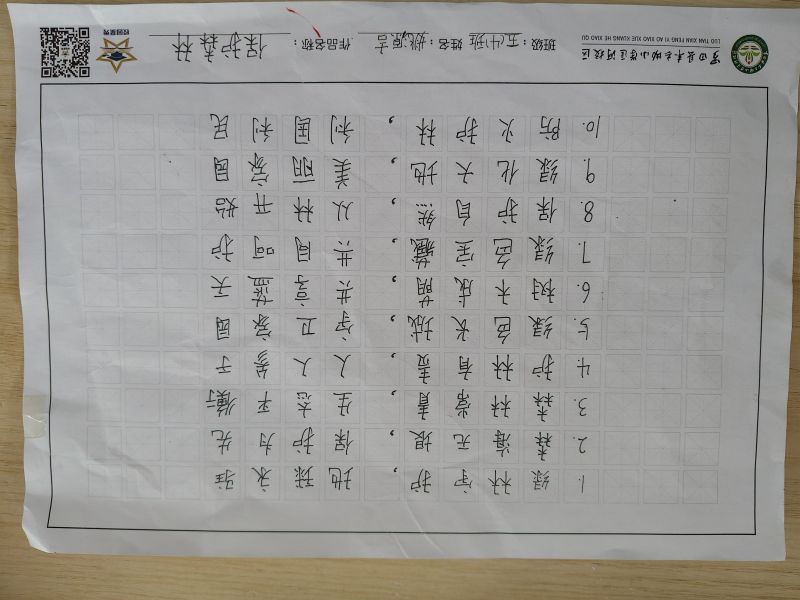 罗田县 小学 河校区
LUO TIAN XIAN FENG YI AO XIAO XUE KUANG HE XIAO QU
班级：五(1)班 姓名：姚源言 作品名称：保护森林
校园星秀
1. 绿林守护，地球永驻
2. 森海无垠，保护为先
3. 森林常青，生态平衡
4. 护林有责，人人参予
5. 绿色长城，守卫家园
6. 树木成荫，共享蓝天
7. 绿色宝藏，共同呵护
8. 保护自然，从林开始
9. 绿化大地，美丽家园
10. 防火护林，利国利民